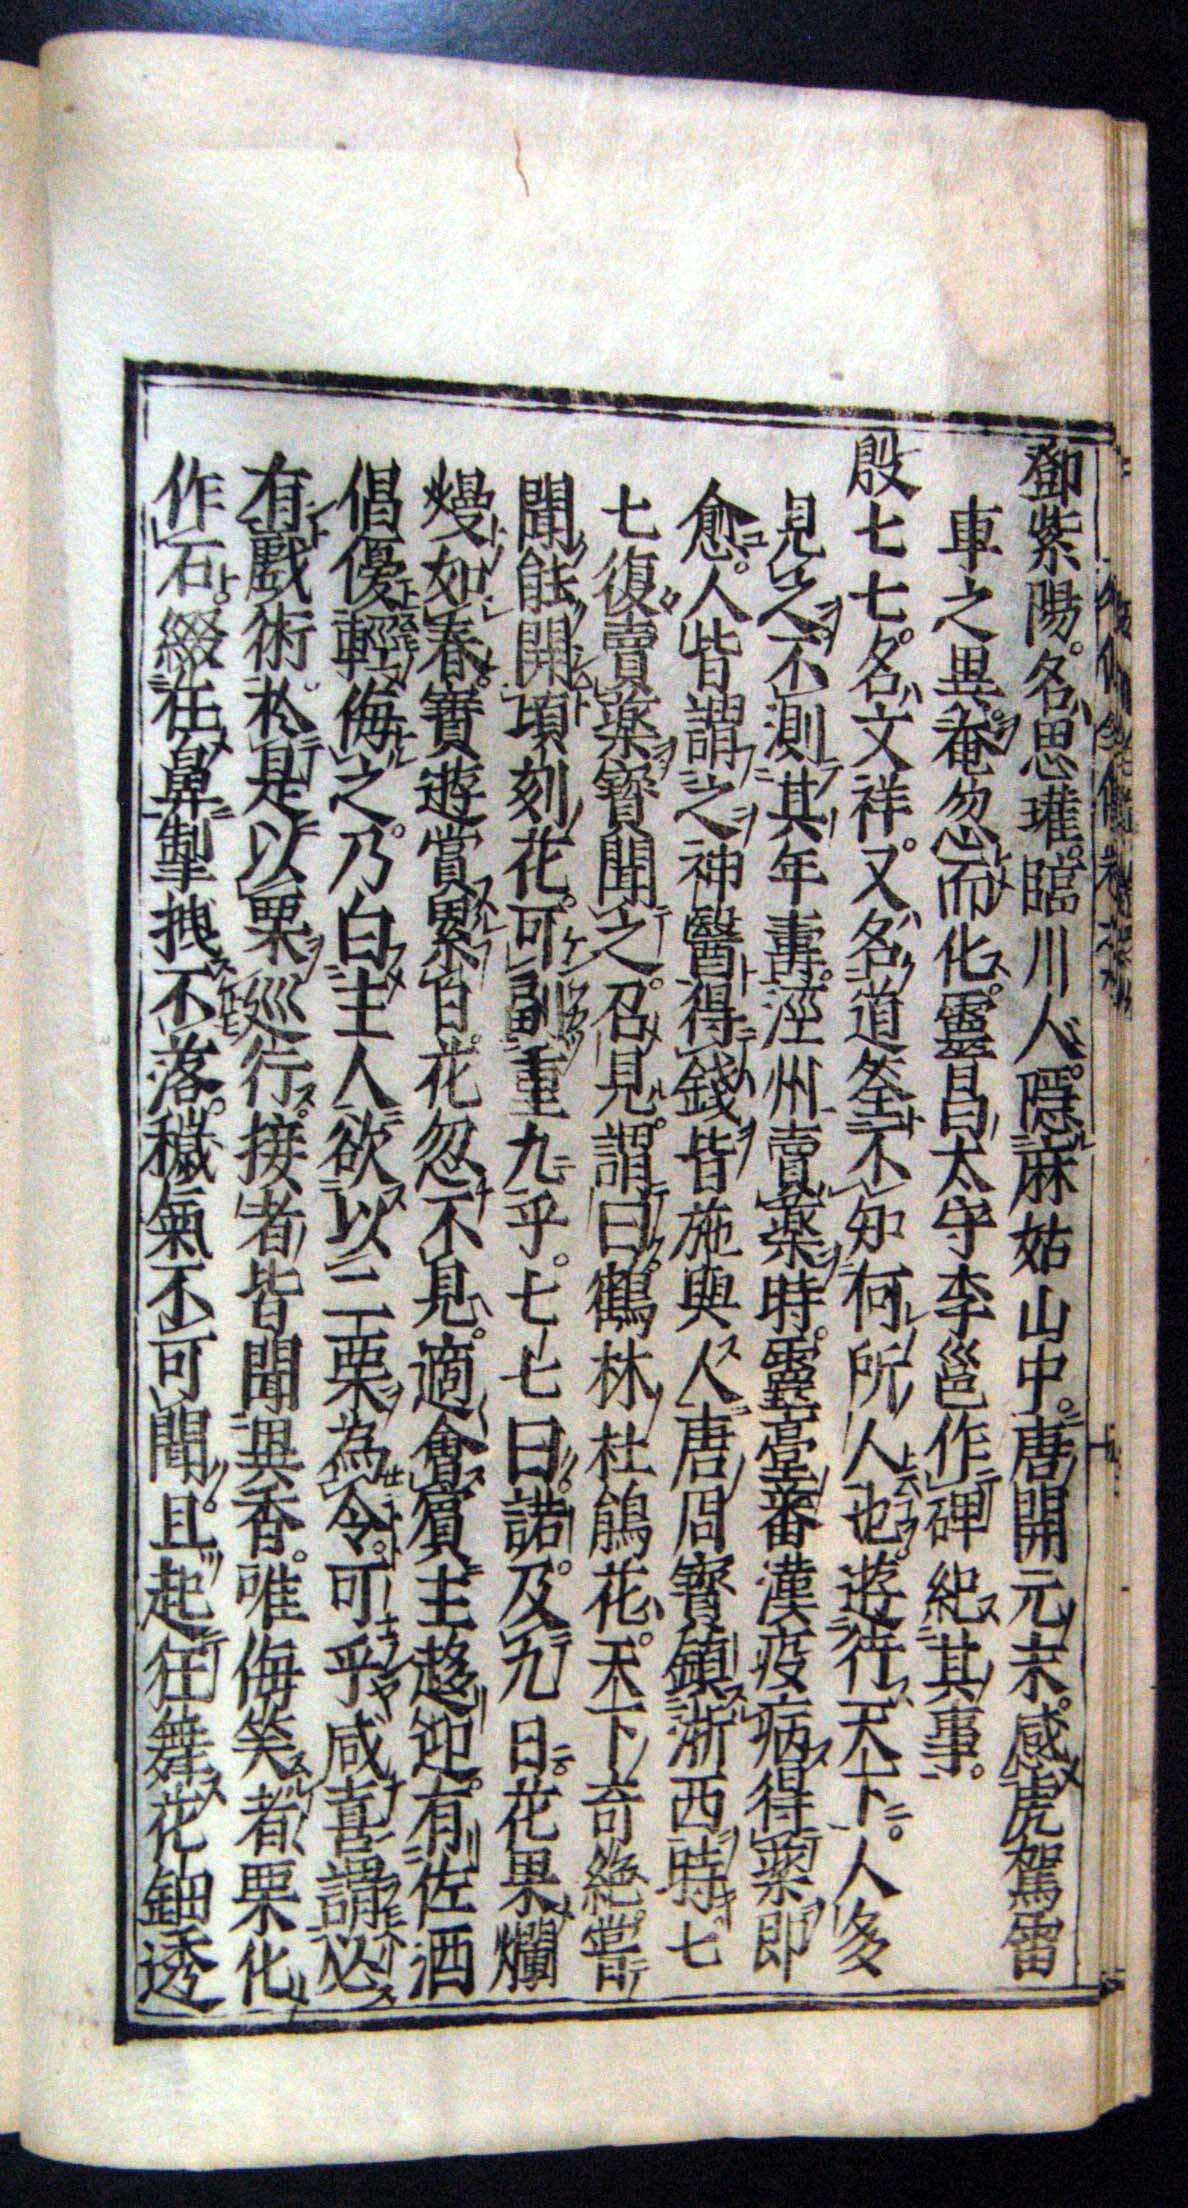 鄧紫陽。名思瓘。臨川人。隱麻姑山中。唐開元末。感虎駕雷
車之異。奄忽而化。靈昌太守李邕作碑紀其事。
殷七七。名文祥。又名道筌。不知何所人也。遊行天下。人多
見之不測其年壽。涇州賣藥時。靈臺蕃漢疫病得藥即
愈。人皆謂之神醫得錢皆施與人。唐周寶鎮浙西時。七
七復賣藥。寶聞之。召見。謂曰。鶴林杜鵑花。天下奇絶。嘗
聞能開頃刻花。可副重九乎。七七曰。諾。及九日花果爛
熳如春。寶遊賞累日。花忽不見。適會賓主趨迎。有佐酒
倡優輕侮之。乃白主人欲以二栗為令。可乎咸喜謂必
有戲術於是以栗巡行。接者皆聞異香。唯侮笑者栗化
作石。綴在鼻掣拽不落。穢氣不可聞。且起狂舞花鈿透